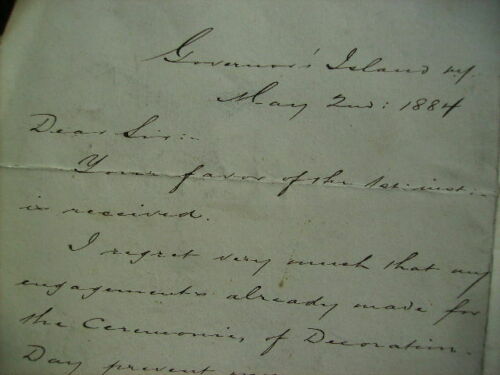 Governor's Island N.Y.
May 2nd: 1884
Dear Sir:-
Your favor of the 1st: inst.
is received.
I regret very much that my
engagements already made for
the Ceremonies of Decoration
Day prevent